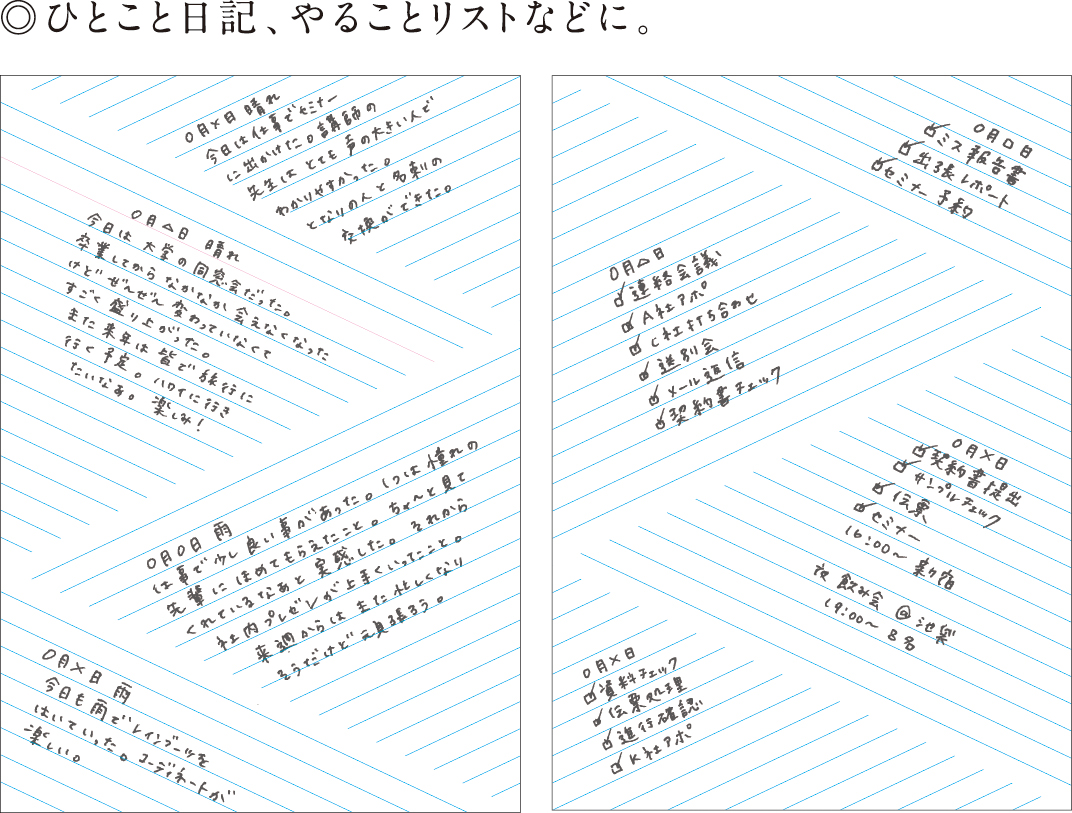 ◎ひとこと日記、やることリストなどに。
○月×日 晴れ
今日は仕事でセミナー
に出かけた。講師の
先生は とても 声の大きい人で
わかりやすかった。
となりの人と 名刺の
交換ができた。
○月△日 晴れ
今日は 大学の 同窓会だった。
卒業してから なかなか 会えなくなった
けど ぜんぜん 変わっていなくて
すごく 盛り上がった。
また 来年は 皆で 旅行に
行く 予定。ハワイに行き
たいなあ。 楽しみ!
○月○日 雨
仕事で少し良い事があった。じつは 憧れの
先輩にほめてもらえたこと。ちゃんと見て
くれているなあと 実感した。それから
社内プレゼンが上手くいったこと。
来週からは また忙しくなり
そうだけど 元気張ろう。
○月×日 雨
今日も 雨で レインブーツを
はいていった。コーディネートが
楽しい。
○月□日
ミス報告書
出張レポート
セミナー予約
○月△日
連絡会議
A社アポ
C社打ち合わせ
送別会
メール返信
契約書チェック
○月×日
契約書提出
サンプルチェック
伝票
セミナー
16:00〜 新宿
夜 飲み会 @池袋
19:00〜 8名
○月×日
資料チェック
伝票処理
進行確認
K社アポ